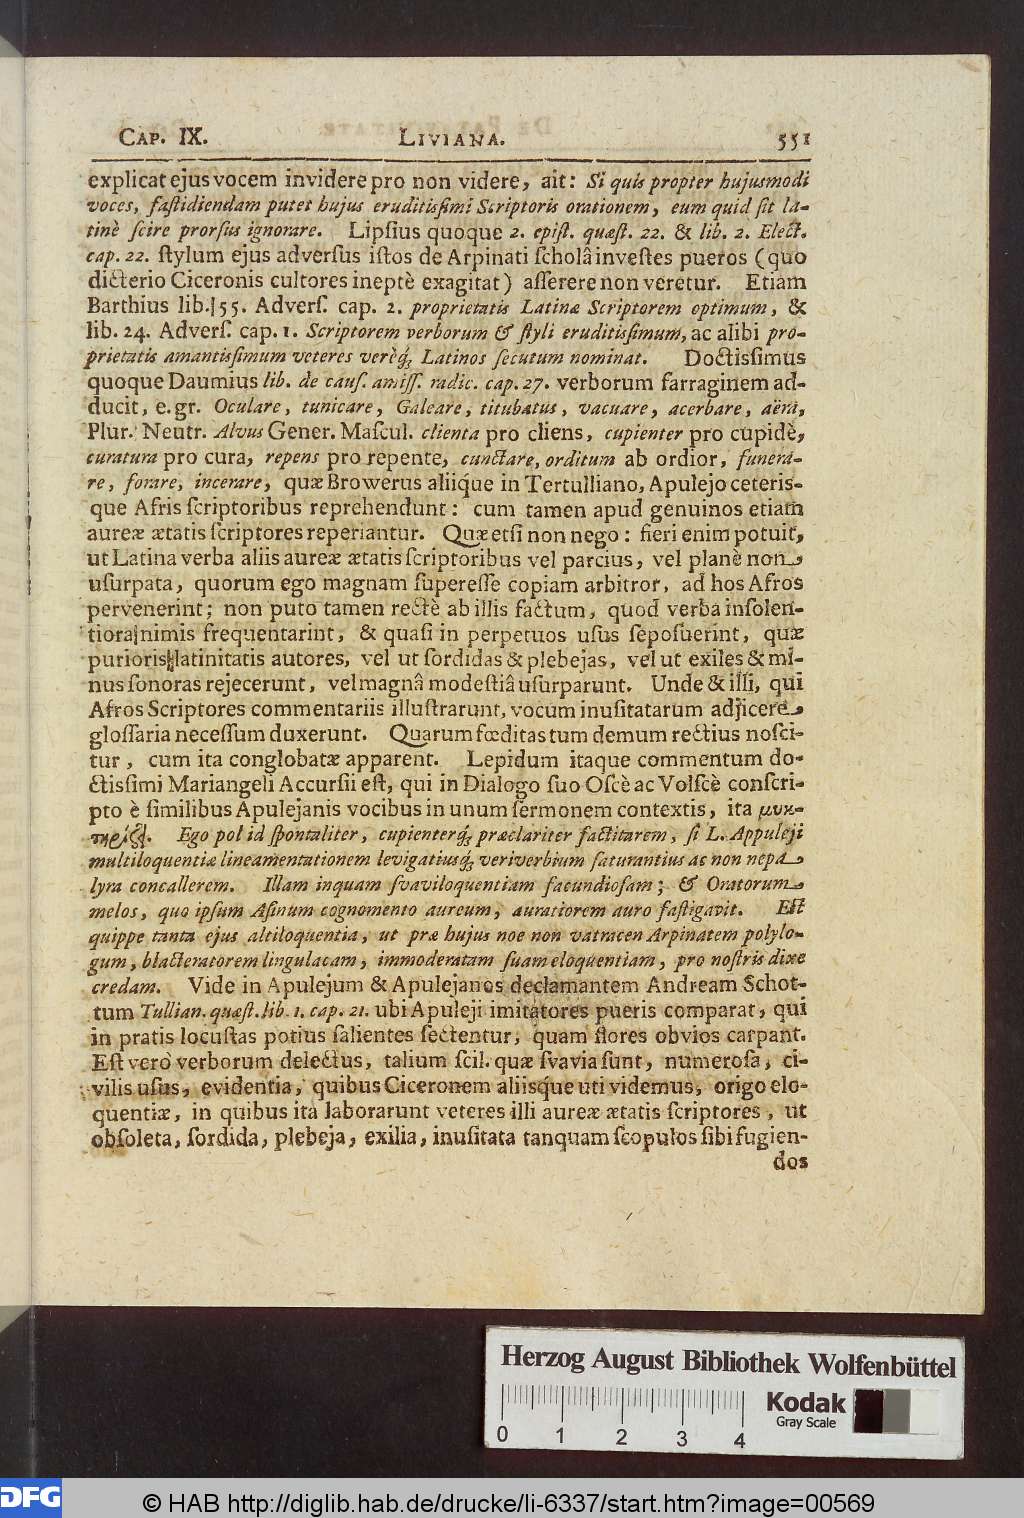 CAP. IX. LIVIANA. 551
explicat ejus vocem invidere pro non videre, ait: Si quis propter hujusmodi
voces, faſtidiendam putet hujus eruditiſſimi Scriptoris orationem, eum quid ſit la-
tinè ſcire prorſus ignorare. Lipſius quoque 2. epiſt. quæſt. 22. & lib. 2. Elect.
cap. 22. ſtylum ejus adverſus iſtos de Arpinati ſcholâ inveſtes pueros (quo
dicterio Ciceronis cultores ineptè exagitat) aſſerere non veretur. Etiam
Barthius lib. 55. Adverſ. cap. 2. proprietatis Latinæ Scriptorem optimum, &
lib. 24. Adverſ. cap. 1. Scriptorem verborum & ſtyli eruditiſſimum, ac alibi pro-
prietatis amantiſſimum veteres verèq; Latinos ſecutum nominat. Doctiſſimus
quoque Daumius lib. de cauſ. amiſſ. radic. cap. 27. verborum farraginem ad-
ducit, e. gr. Oculare, tunicare, Galeare, titubatus, vacuare, acerbare, aëra,
Plur. Neutr. Alvus Gener. Maſcul. clienta pro cliens, cupienter pro cupidè,
curatura pro cura, repens pro repente, cunctare, orditum ab ordior, funera-
re, forare, incerare, quæ Browerus aliiq́ue in Tertulliano, Apulejo ceteris-
que Afris ſcriptoribus reprehendunt: cum tamen apud genuinos etiam
aureæ ætatis ſcriptores reperiantur. Quæ etſi non nego: fieri enim potuit,
ut Latina verba aliis aureæ ætatis ſcriptoribus vel parcius, vel planè non
uſurpata, quorum ego magnam ſupereſſe copiam arbitror, ad hos Afros
pervenerint; non puto tamen rectè ab illis factum, quod verba inſolen-
tiora nimis frequentarint, & quaſi in perpetuos uſus ſepoſuerint, quæ
purioris latinitatis autores, vel ut ſordidas & plebejas, vel ut exiles & mi-
nus ſonoras rejecerunt, vel magnâ modeſtiâ uſurparunt. Unde & illi, qui
Afros Scriptores commentariis illuſtrarunt, vocum inuſitatarum adjicere
gloſſaria neceſſum duxerunt. Quarum fœditas tum demum rectius noſci-
tur, cum ita conglobatæ apparent. Lepidum itaque commentum do-
ctiſſimi Mariangeli Accurſii eſt, qui in Dialogo ſuo Oſcè ac Volſcè conſcri-
pto è ſimilibus Apulejanis vocibus in unum ſermonem contextis, ita μυκ-
τηρίζει. Ego pol id ſpontaliter, cupienterq; præclariter factitarem, ſi L. Appuleji
multiloquentiæ lineamentationem levigatiusq; veriverbium ſaturantius ac non nepa
lyra concallerem. Illam inquam ſvaviloquentiam facundioſam; & Oratorum
melos, quo ipſum Aſinum cognomento aureum, auratiorem auro faſtigavit. Eſt
quippe tanta ejus altiloquentia, ut præ hujus noe non vatracen Arpinatem polylo-
gum, blacteratorem lingulacam, immoderatam ſuam eloquentiam, pro noſtris dixe
credam. Vide in Apulejum & Apulejanos declamantem Andream Schot-
tum Tullian. quæſt. lib. 1. cap. 21. ubi Apuleji imitatores pueris comparat, qui
in pratis locuſtas potius ſalientes ſectentur, quam flores obvios carpant.
Eſt vero verborum delectus, talium ſcil. quæ ſvavia ſunt, numeroſa, ci-
vilis uſus, evidentia, quibus Ciceronem aliisq́ue uti videmus, origo elo-
quentiæ, in quibus ita laborarunt veteres illi aureæ ætatis ſcriptores, ut
obſoleta, ſordida, plebeja, exilia, inuſitata tanquam ſcopulos ſibi fugien-
dos
Herzog August Bibliothek Wolfenbüttel
Kodak
Gray Scale
0 1 2 3 4
DFG
© HAB http://diglib.hab.de/drucke/li-6337/start.htm?image=00569